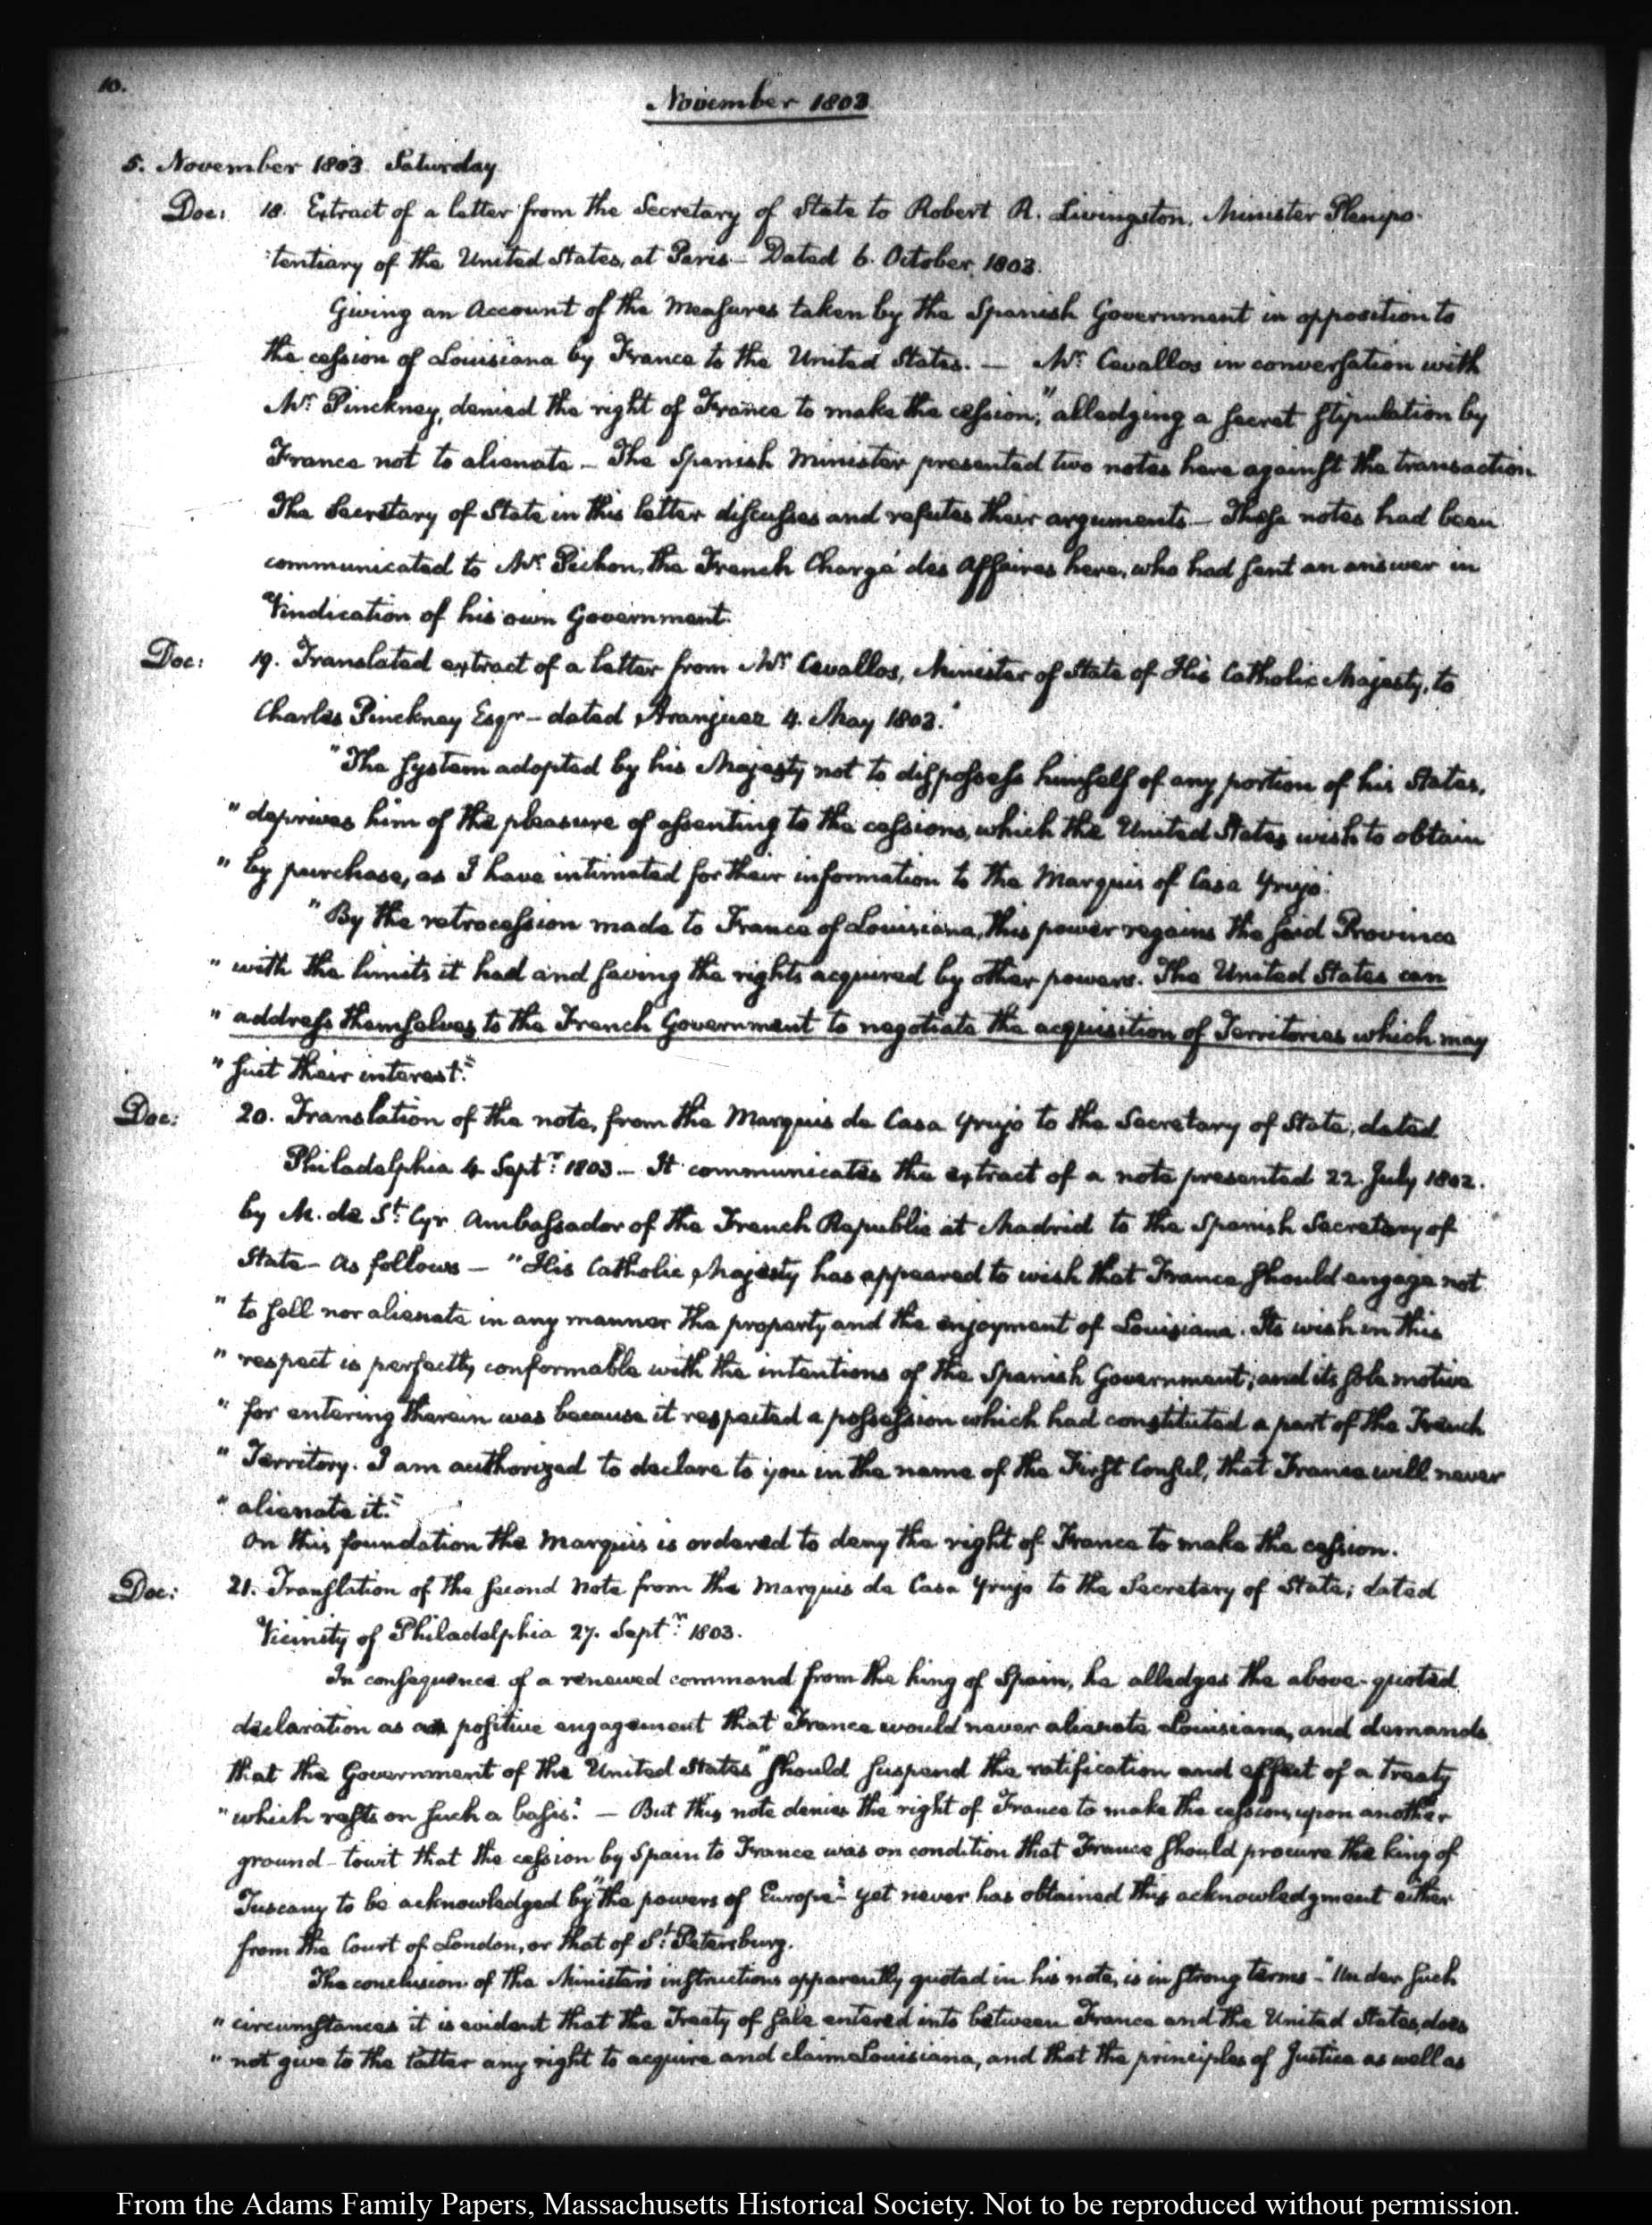 10.
November 1803
5. November 1803. Saturday
Doc: 18. Extract of a letter from the Secretary of State to Robert R. Livingston, Minister Plenipo-
tentiary of the United States, at Paris — Dated 6. October, 1803.
Giving an Account of the Measures taken by the Spanish Government in opposition to
the cession of Louisiana by France to the United States. — Mr. Cevallos in conversation with
Mr. Pinckney, denied the right of France to make the cession," alledging a secret stipulation by
France not to alienate — The Spanish Minister presented two notes here against the transaction
The Secretary of State in this letter discusses and refutes their arguments — These notes had been
communicated to Mr. Pichon, the French Chargé des Affaires here, who had sent an answer in
Vindication of his own Government.
Doc: 19. Translated extract of a letter from Mr. Cevallos, Minister of State of His Catholic Majesty, to
Charles Pinckney Esqr — dated Aranjuez 4. May 1803."
"The system adopted by his Majesty not to dispossess himself of any portion of his States,
" deprives him of the pleasure of assenting to the cessions, which the United States wish to obtain
" by purchase, as I have intimated for their information to the Marquis of Casa Yrujo.
"By the retrocession made to France of Louisiana, this power regains the said Province
" with the limits it had and saving the rights acquired by other powers. The United States can
" address themselves to the French Government to negotiate the acquisition of Territories which may
" suit their interest."
Doc: 20. Translation of the note, from the Marquis de Casa Yrujo to the Secretary of State, dated
Philadelphia 4 Septr. 1803 — It communicates the extract of a note presented 22. July 1802.
by M. de St. Cyr Ambassador of the French Republic at Madrid to the Spanish Secretary of
State — as follows — "His Catholic Majesty has appeared to wish that France should engage not
" to sell nor alienate in any manner the property and the enjoyment of Louisiana. Its wish in this
" respect is perfectly conformable with the intentions of the Spanish Government; and its sole motive
" for entering therein was because it respected a possession which had constituted a part of the French
" Territory. I am authorized to declare to you in the name of the First Consul, that France will never
" alienate it."
On this foundation the Marquis is ordered to deny the right of France to make the cession.
Doc: 21. Translation of the second Note from the Marquis de Casa Yrujo to the Secretary of State; dated
Vicinity of Philadelphia 27. Septr. 1803.
In consequence of a renewed command from the king of Spain, he alledges the above-quoted
declaration as a positive engagement that France would never alienate Louisiana, and demands
that the Government of the United States "should suspend the ratification and effect of a treaty
" which rests on such a basis." — But this note denies the right of France to make the cession, upon another
ground — towit that the cession by Spain to France was on condition that France should procure the king of
Tuscany to be acknowledged by "the powers of Europe" — yet never has obtained this acknowledgment either
from the Court of London, or that of St. Petersburg.
The conclusion of the Minister's instructions apparently quoted in his note, is in strong terms — "Under such
" circumstances it is evident that the Treaty of sale entered into between France and the United States, does
" not give to the latter any right to acquire and claim Louisiana, and that the principles of Justice as well as
From the Adams Family Papers, Massachusetts Historical Society. Not to be reproduced without permission.